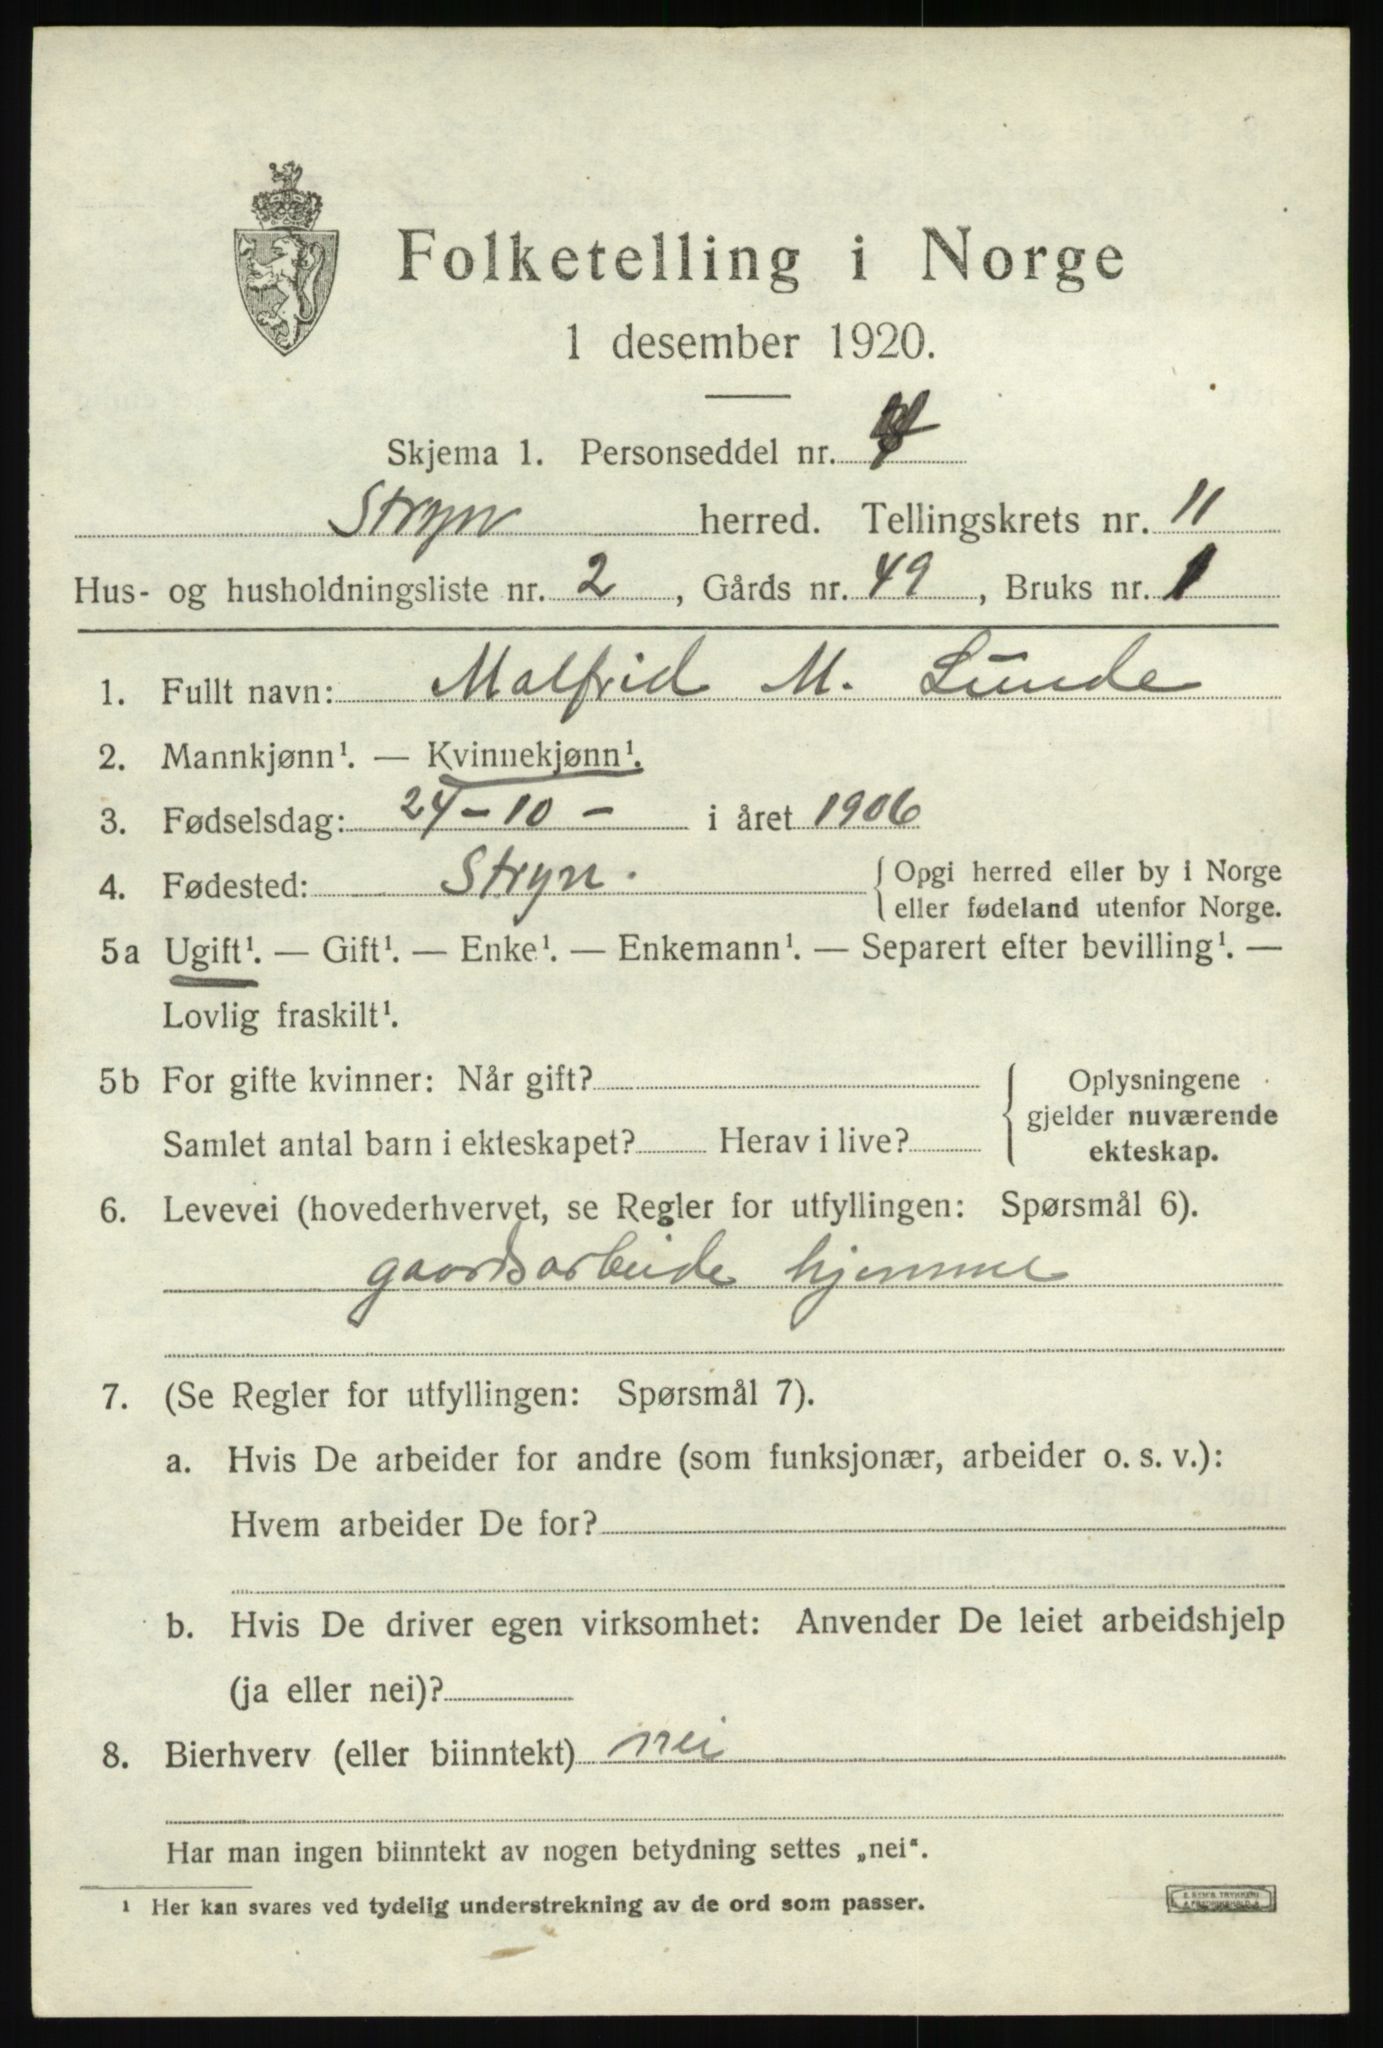 Folketelling i Norge
1 desember 1920.
Skjema 1. Personseddel nr. 4
Stryn herred. Tellingskrets nr. 11
Hus- og husholdningsliste nr. 2, Gårds nr. 49, Bruks nr. 1
1. Fullt navn: Malfrid M. Lunde
2. Mannkjønn¹. — Kvinnekjønn¹.
3. Fødselsdag: 24-10- i året 1906
4. Fødested: Stryn. { Opgi herred eller by i Norge
eller fødeland utenfor Norge.
5a Ugift¹. — Gift¹. — Enke¹. — Enkemann¹. — Separert efter bevilling¹. —
Lovlig fraskilt¹.
5b For gifte kvinner: Når gift? { Oplysningene
gjelder nuværende
Samlet antal barn i ekteskapet? Herav i live? ekteskap.
6. Levevei (hovederhvervet, se Regler for utfyllingen: Spørsmål 6).
gaardsarbeide hjemme
7. (Se Regler for utfyllingen: Spørsmål 7).
a. Hvis De arbeider for andre (som funksjonær, arbeider o. s. v.):
Hvem arbeider De for?
b. Hvis De driver egen virksomhet: Anvender De leiet arbeidshjelp
(ja eller nei)?
8. Bierhverv (eller biinntekt) nei
Har man ingen biinntekt av nogen betydning settes „nei“.
¹ Her kan svares ved tydelig understrekning av de ord som passer.